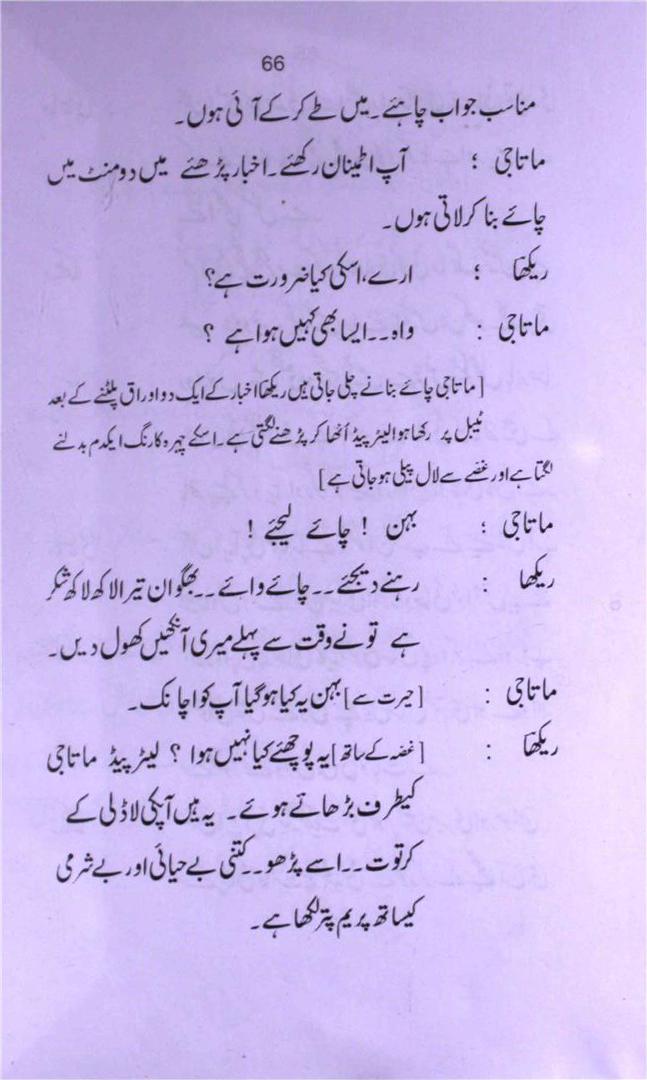 66
مناسب جواب چاہئے۔ میں طے کر کے آئی ہوں۔
ماتاجی ؛ آپ اطمینان رکھئے۔ اخبار پڑھئے میں دو منٹ میں
چائے بنا کر لاتی ہوں۔
ریکھا ؛ ارے، اسکی کیا ضرورت ہے؟
ماتاجی : واہ۔۔ ایسا بھی کہیں ہوا ہے ؟
[ماتاجی چائے بنانے چلی جاتی ہیں ریکھا اخبار کے ایک دو اوراق پلٹنے کے بعد
ٹیبل پر رکھا ہوا لیٹر پیڈ اُٹھا کر پڑھنے لگتی ہے۔ اسکے چہرہ کا رنگ ایکدم بدلنے
لگتا ہے اور غصے سے لال پیلی ہو جاتی ہے]
ماتاجی ؛ بہن ! چائے لیجئے !
ریکھا : رہنے دیجئے۔۔ چائے وائے۔۔ بھگوان تیرا لاکھ لاکھ شکر
ہے تو نے وقت سے پہلے میری آنکھیں کھول دیں۔
ماتاجی : [حیرت سے] بہن یہ کیا ہو گیا آپ کو اچانک۔
ریکھا : [غصہ کے ساتھ] یہ پوچھئے کیا نہیں ہوا ؟ لیٹر پیڈ ماتاجی
کیطرف بڑھاتے ہوئے۔ یہ ہیں آپکی لاڈلی کے
کرتوت۔۔ اسے پڑھو۔۔ کتنی بے حیائی اور بے شرمی
کیساتھ پریم پتر لکھا ہے۔